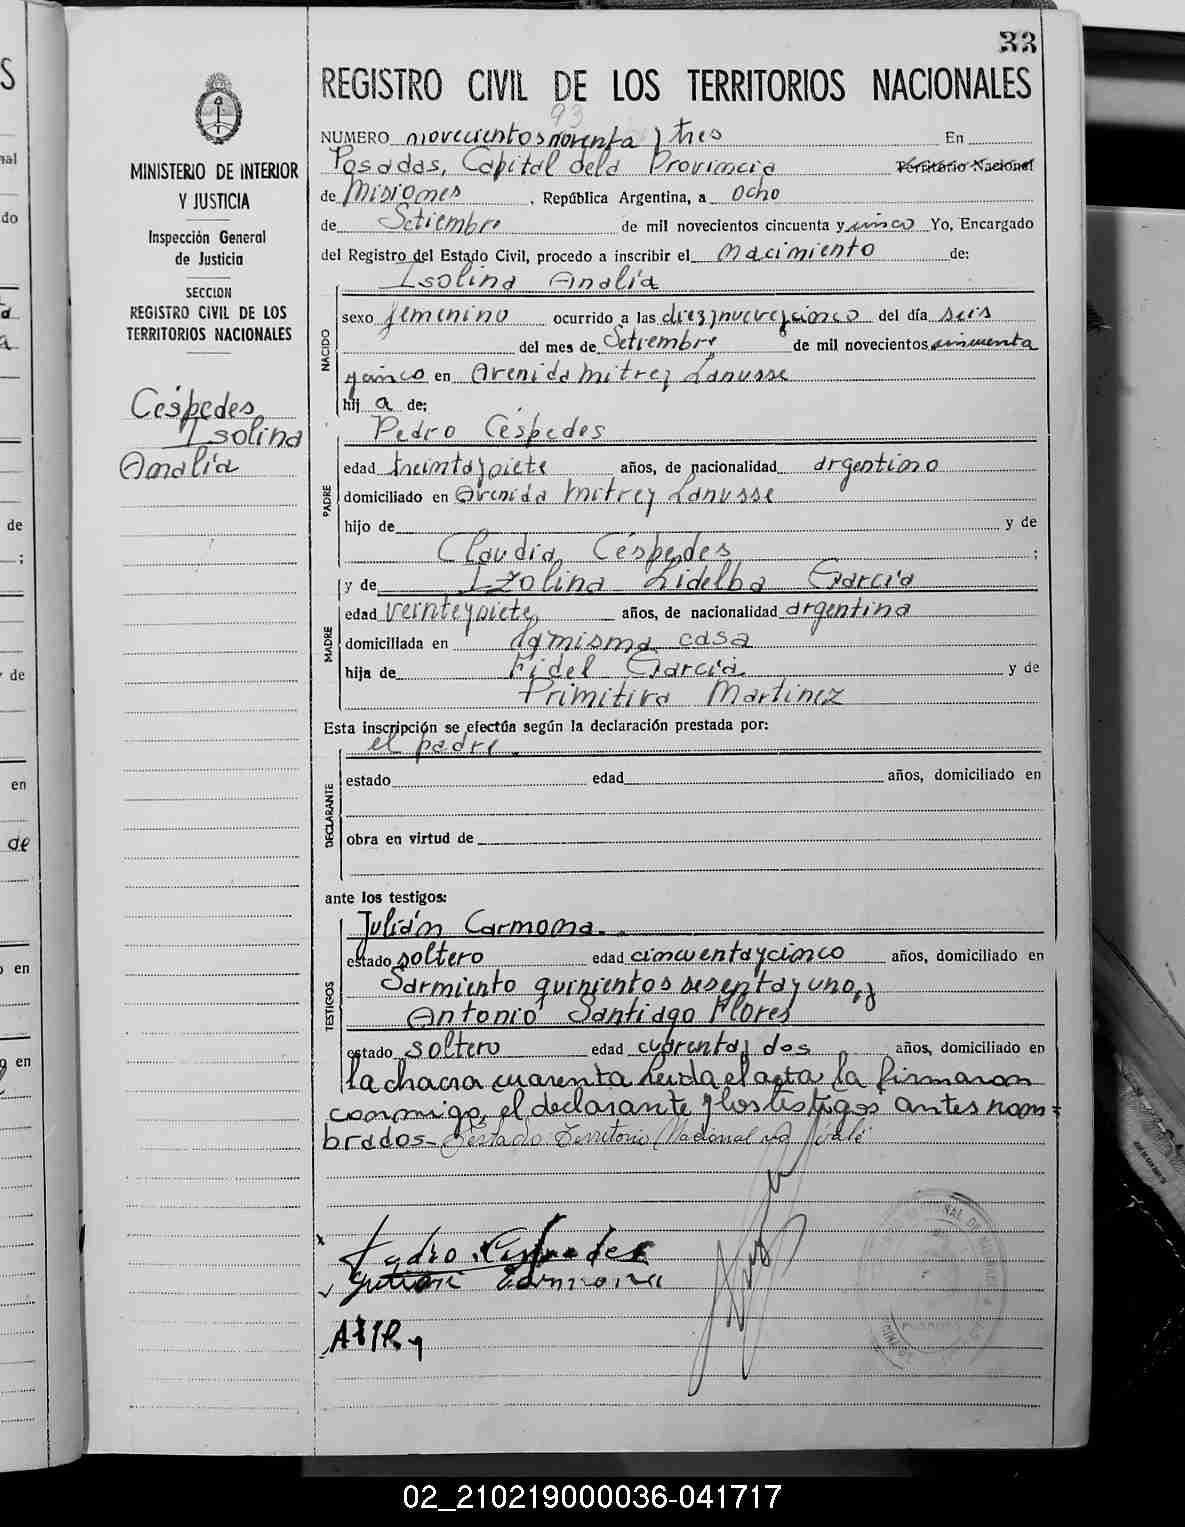 33
REGISTRO CIVIL DE LOS TERRITORIOS NACIONALES
93
NUMERO novecientos noventa y tres En
Posadas, Capital dela Provincia Territorio Nacional
de Misiones, República Argentina, a ocho
de Setiembre de mil novecientos cincuenta y cinco Yo, Encargado
del Registro del Estado Civil, procedo a inscribir el nacimiento de:
Isolina Analía
NACIDO
sexo femenino ocurrido a las diez y nueve y cinco del día seis
del mes de Setiembre de mil novecientos cincuenta
y cinco en Avenida Mitre y Lanusse
hij a de:
Pedro Céspedes
PADRE
edad treinta y siete años, de nacionalidad argentino
domiciliado en Avenida Mitre y Lanusse
hijo de y de
Claudia Céspedes ;
y de Izolina Lidelba García
MADRE
edad veinte y siete años, de nacionalidad argentina
domiciliada en la misma casa
hija de Fidel García y de
Primitiva Martinez
Esta inscripción se efectúa según la declaración prestada por:
el padre.
DECLARANTE
estado edad años, domiciliado en
obra en virtud de
ante los testigos:
Julián Carmona.
TESTIGOS
estado soltero edad cincuenta y cinco años, domiciliado en
Sarmiento quinientos sesenta y uno, y
Antonio Santiago Flores
estado soltero edad cuarenta y dos años, domiciliado en
la chacra cuarenta Leida el acta, la firmaron
conmigo, el declarante y los testigos antes nom=
brados- Testado Territorio Nacional no vale
Pedro Cespedes
Julian Carmona
MINISTERIO DE INTERIOR
Y JUSTICIA
Inspección General
de Justicia
SECCION
REGISTRO CIVIL DE LOS
TERRITORIOS NACIONALES
Céspedes
Isolina
Analía
02_210219000036-041717